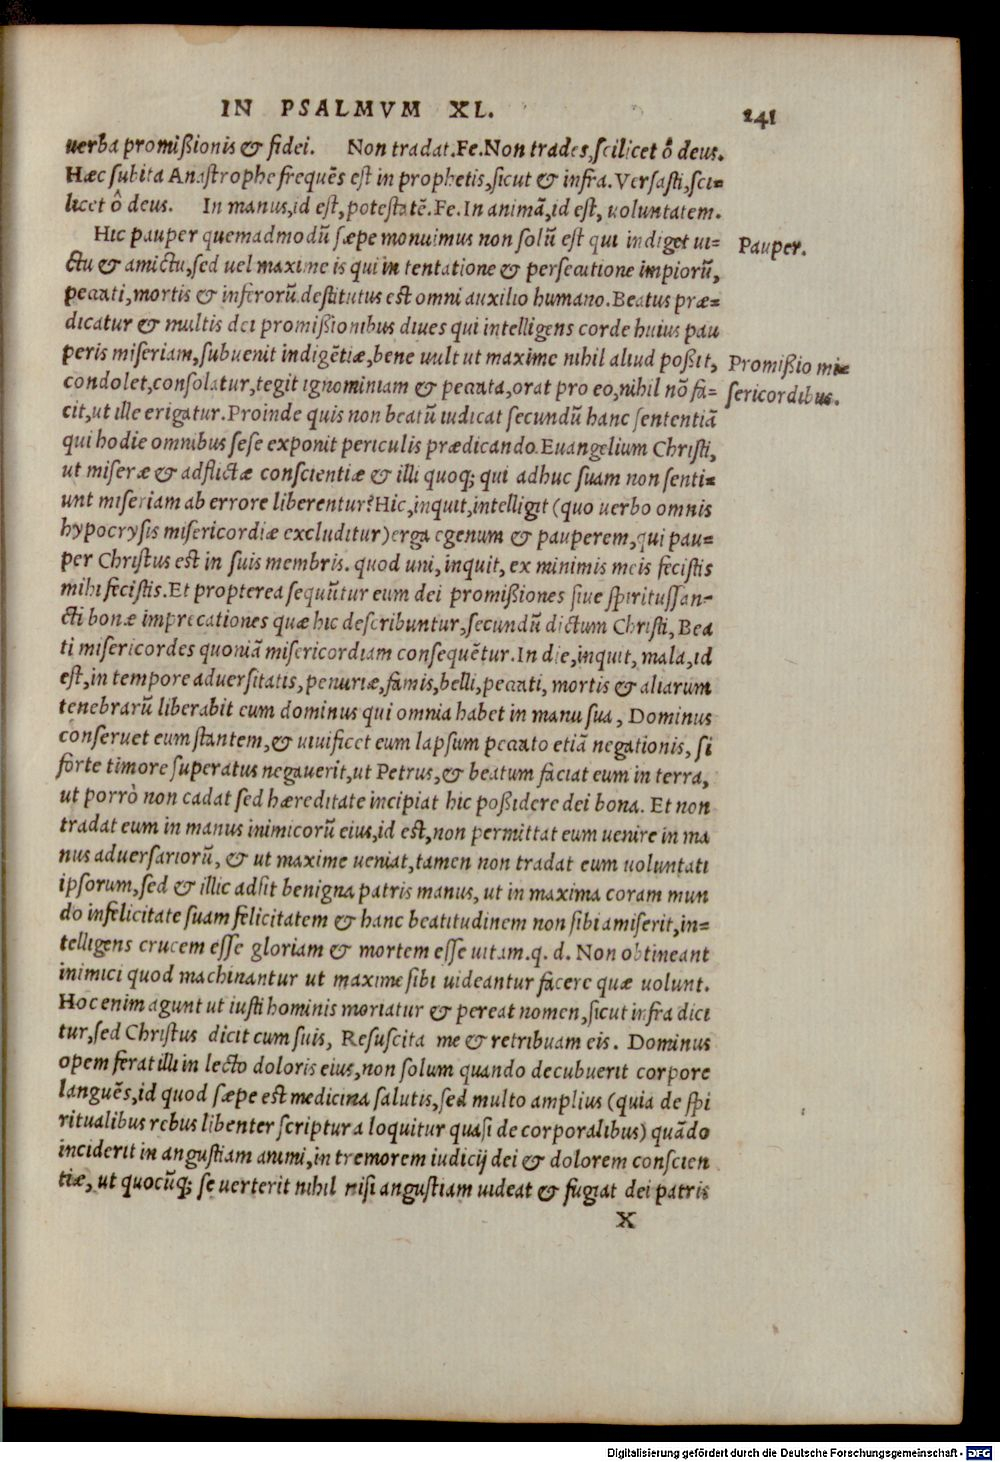 IN PSALMVM XL. 241
uerba promißionis & fidei. Non tradat. Fe. Non trades, scilicet ô deus.
Hæc subita Anastrophe frequẽs est in prophetis, sicut & infra. Versasti, sci=
licet ô deus. In manus, id est, potestatẽ. Fe. In animã, id est, uoluntatem.
Hic pauper quemadmodũ sæpe monuimus non solũ est qui indiget ui=
ctu & amictu, sed uel maxime is qui in tentatione & persecutione impiorũ,
peccati, mortis & inferorũ destitutus est omni auxilio humano. Beatus præ=
dicatur & multis dei promißionibus diues qui intelligens corde huius pau
peris miseriam, subuenit indigẽtiæ, bene uult ut maxime nihil aliud poßit,
condolet, consolatur, tegit ignominiam & peccata, orat pro eo, nihil nõ fa=
cit, ut ille erigatur. Proinde quis non beatũ iudicat secundũ hanc sententiã
qui hodie omnibus sese exponit periculis prædicando Euangelium Christi,
ut miseræ & adflictæ conscientiæ & illi quoq; qui adhuc suam non senti=
unt miseriam ab errore liberentur? Hic, inquit, intelligit (quo uerbo omnis
hypocrysis misericordiæ excluditur) erga egenum & pauperem, qui pau=
per Christus est in suis membris. quod uni, inquit, ex minimis meis fecistis
mihi fecistis. Et propterea sequũtur eum dei promißiones siue spiritussan-
cti bonæ imprecationes quæ hic describuntur, secundũ dictum Christi, Bea
ti misericordes quoniã misericordiam consequẽtur. In die, inquit, mala, id
est, in tempore aduersitatis, penuriæ, famis, belli, peccati, mortis & aliarum
tenebrarũ liberabit eum dominus qui omnia habet in manu sua, Dominus
conseruet eum stantem, & uiuificet eum lapsum peccato etiã negationis, si
forte timore superatus negauerit, ut Petrus, & beatum faciat eum in terra,
ut porrò non cadat sed hæreditate incipiat hic poßidere dei bona. Et non
tradat eum in manus inimicorũ eius, id est, non permittat eum uenire in ma
nus aduersariorũ, & ut maxime ueniat, tamen non tradat eum uoluntati
ipsorum, sed & illic adsit benigna patris manus, ut in maxima coram mun
do infelicitate suam felicitatem & hanc beatitudinem non sibi amiserit, in=
telligens crucem esse gloriam & mortem esse uitam. q. d. Non obtineant
inimici quod machinantur ut maxime sibi uideantur facere quæ uolunt.
Hoc enim agunt ut iusti hominis moriatur & pereat nomen, sicut infra dici
tur, sed Christus dicit cum suis, Resuscita me & retribuam eis. Dominus
opem ferat illi in lecto doloris eius, non solum quando decubuerit corpore
languẽs, id quod sæpe est medicina salutis, sed multo amplius (quia de spi
ritualibus rebus libenter scriptura loquitur quasi de corporalibus) quãdo
inciderit in angustiam animi, in tremorem iudicij dei & dolorem conscien
tiæ, ut quocũq; se uerterit nihil nisi angustiam uideat & fugiat dei patris
X
Pauper.
Promißio mi=
sericordibus.
Digitalisierung gefördert durch die Deutsche Forschungsgemeinschaft - DFG